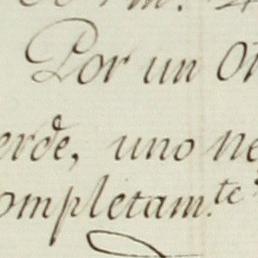 Por un Ot
erde, uno ne
ompletam.te